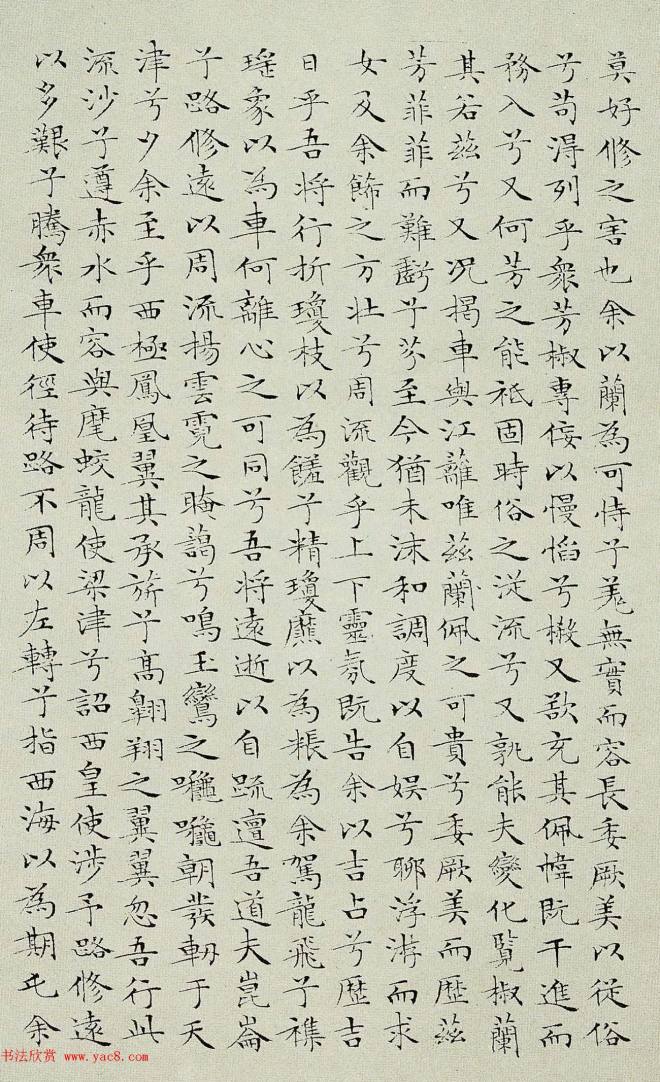 莫好修之害也余以蘭為可恃兮羌無實而容長委厥美以從俗
兮苟淂列乎眾芳椒專佞以慢慆兮樧又欲充其佩幃既干進而
務入兮又何芳之能祗固時俗之從流兮又孰能夫變化覽椒蘭
其若茲兮又況揭車與江離唯茲蘭佩之可貴兮委厥美而歷茲
芳菲菲而難虧兮芬至今猶未沬和調度以自娛兮聊浮游而求
女及余飾之方壯兮周流觀乎上下靈氛既告余以吉占兮歷吉
日乎吾將行折瓊枝以為羞兮精瓊爢以為粻為余駕龍飛兮襍
瑤象以為車何離心之可同兮吾將遠逝以自疏邅吾道夫崑崙
兮路修遠以周流揚雲霓之晻藹兮鳴玉鸞之嚨嚨朝發軔于天
津兮夕余至乎西極鳳凰翼其承旂兮高翱翔之翼翼忽吾行此
流沙兮遵赤水而容與麾蛟龍使梁津兮詔西皇使涉予路修遠
以多艱兮騰眾車使徑待路不周以左轉兮指西海以為期屯余
书法欣赏 www.yac8.com